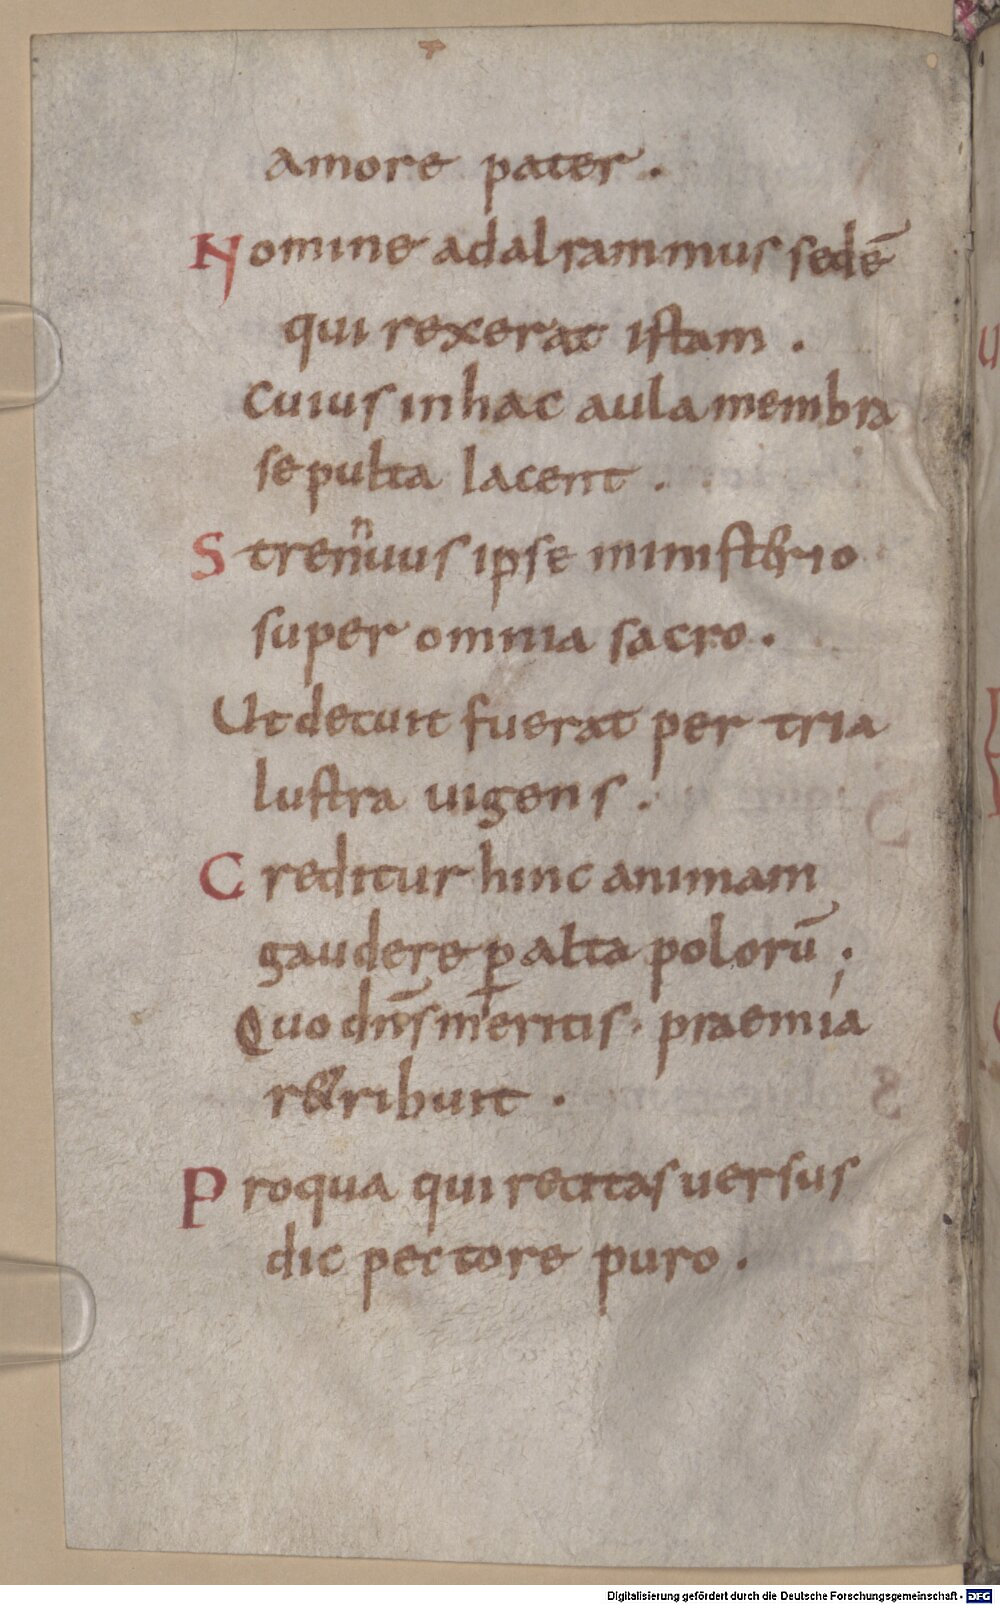 amore pater.
Nomine adalrammus sedē
qui rexerat istam.
Cuius in hac aula membra
sepulta lacent.
Strenńuus ipse ministerio
super omnia sacro.
Ut decuit fuerat per tria
lustra uigens.
Creditur hinc animam
gaudere ꝑ alta polorū.
Quo dn̄s meritis. praemia
re&ribuit.
Pro qua qui recitas uersus
dic pectore puro.
Digitalisierung gefördert durch die Deutsche Forschungsgemeinschaft - DFG